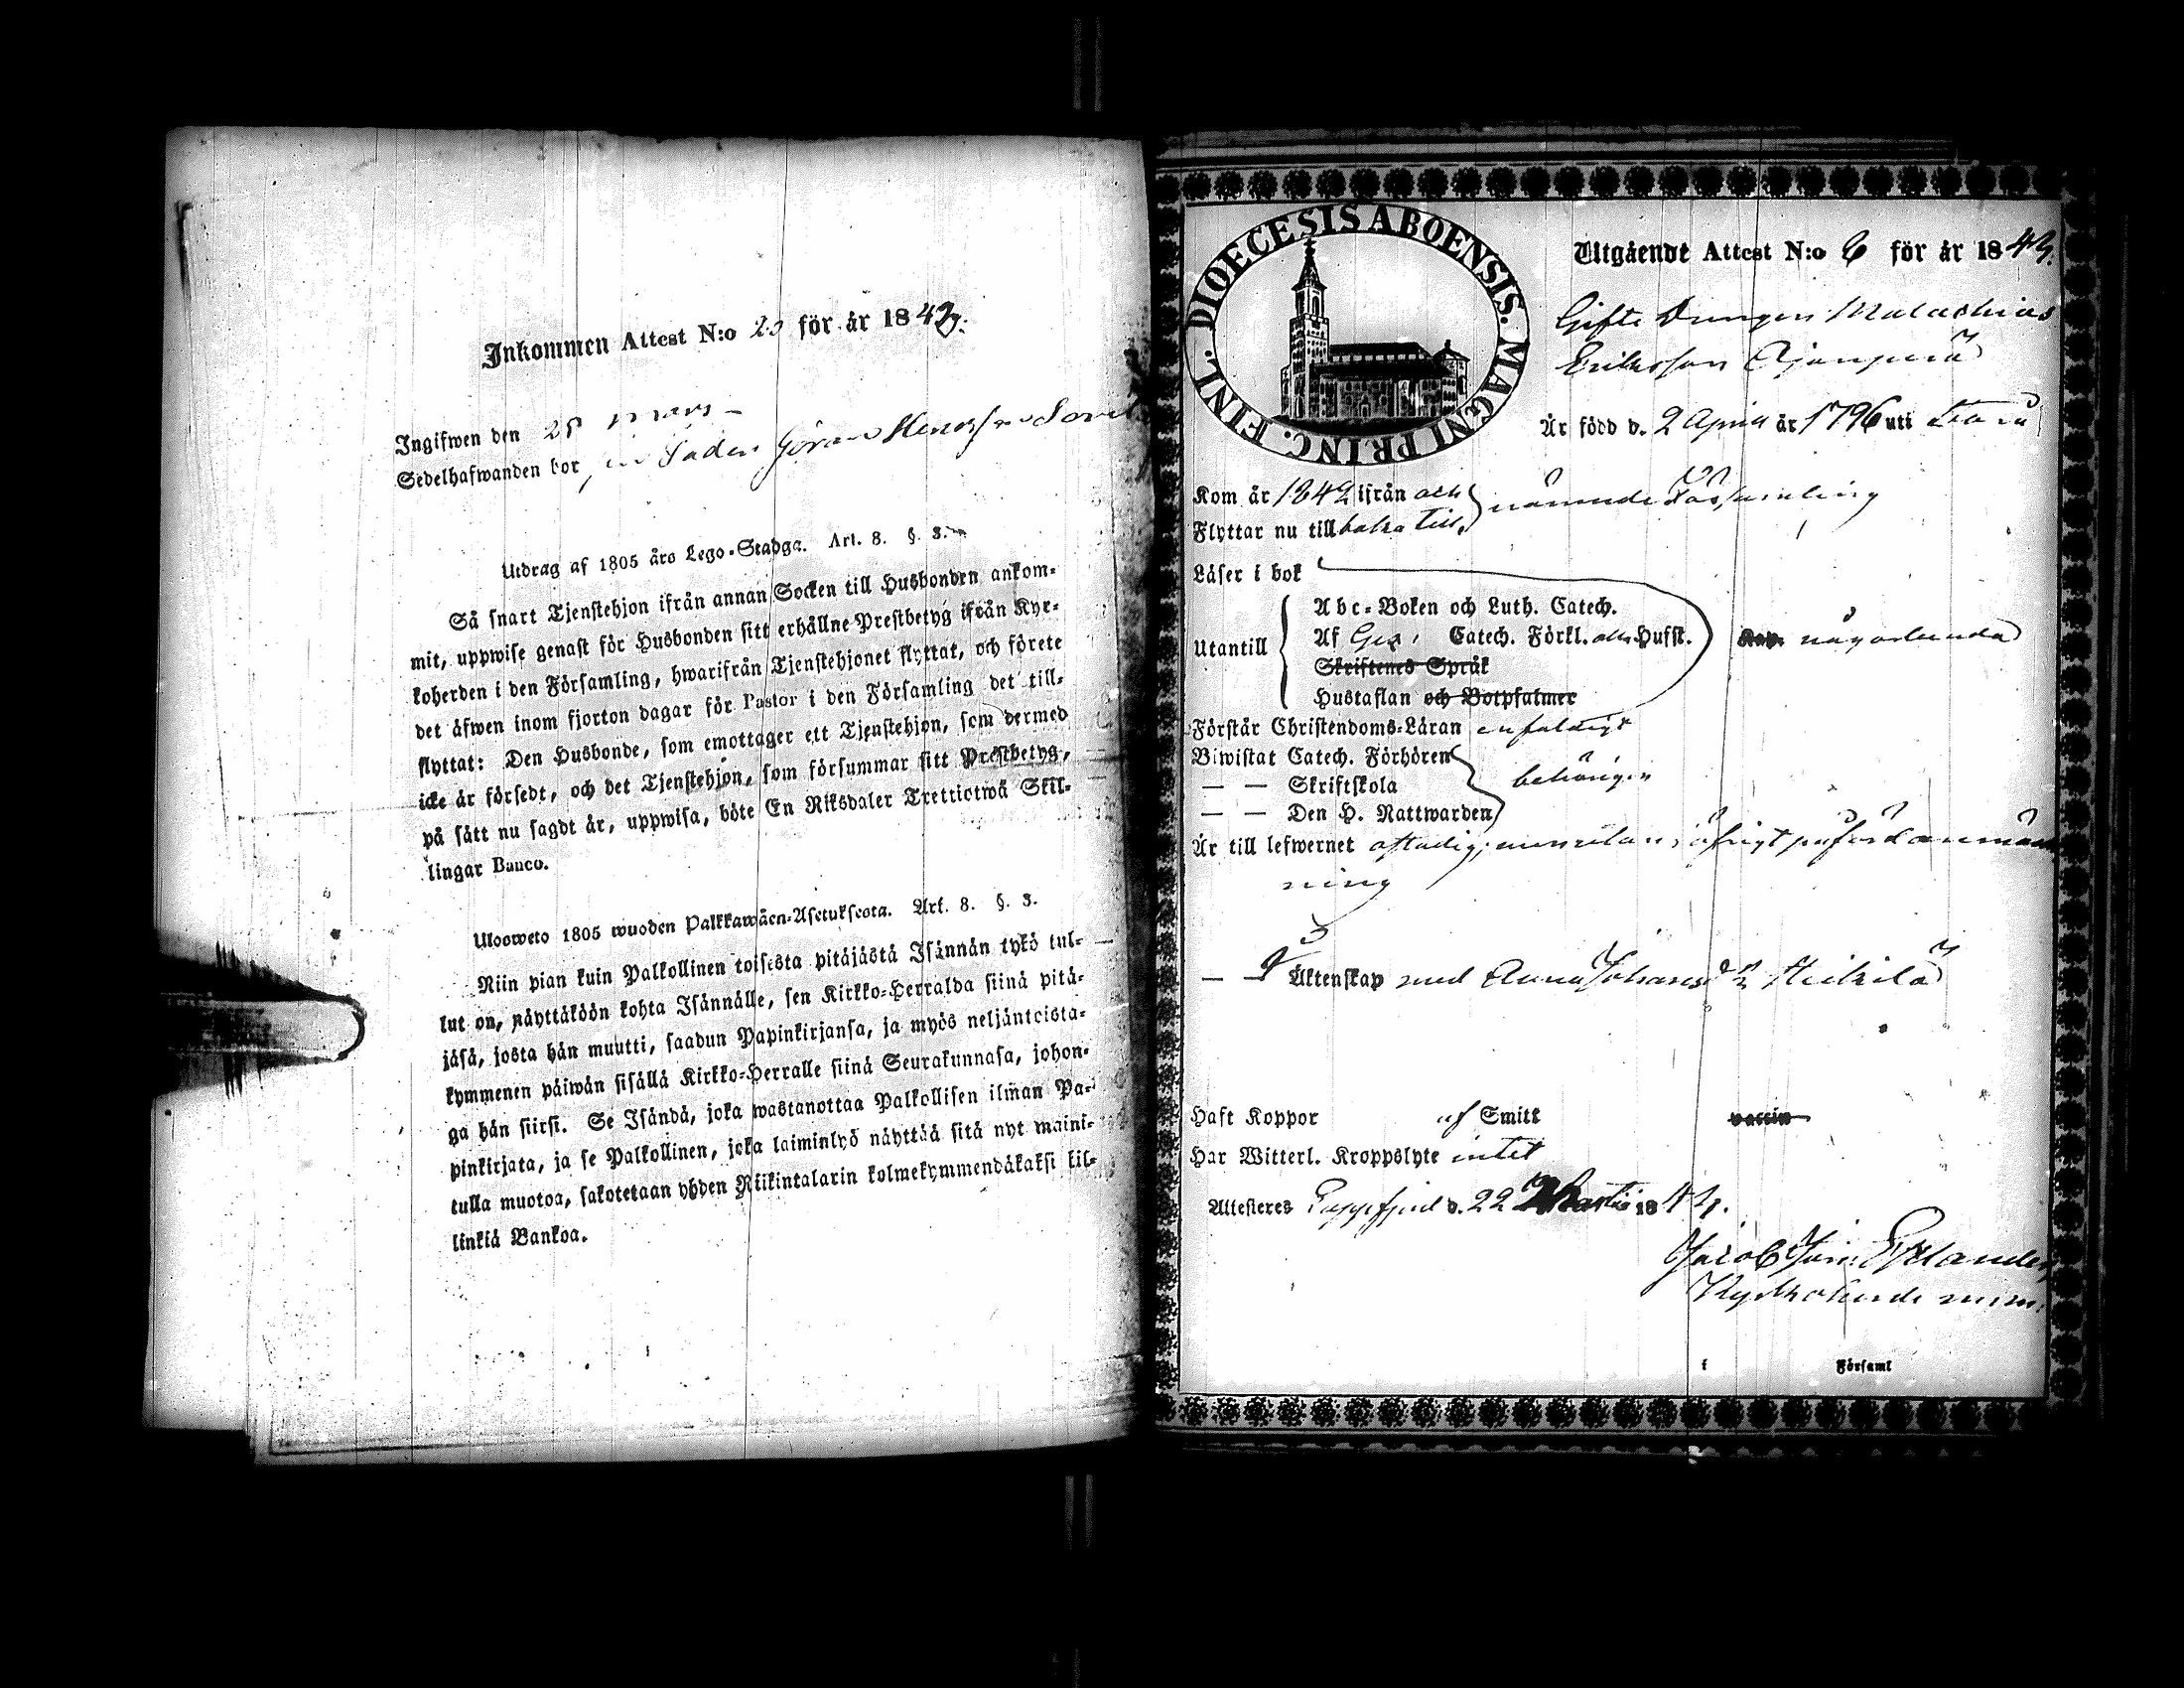 Inkommen Attest N:o 20 för år 1843.
Ingifwen den 28 mars
Sedelhafwanden bor
Utdrag af 1805 års Lego-Stadga. Art. 8. §. 3.
Så snart Tjenstehjon ifrån annan Socken till Husbonden ankom-
mit, uppwise genast för Husbonden sitt erhållne Prestbetyg ifrån Kyr-
koherden i den Församling, hwarifrån Tjenstehjonet flyttat, och förete
det äfwen inom fjorton dagar för Pastor i den Församling det till-
flyttat: Den Husbonde, som emottager ett Tjenstehjon, som dermed
icke är försedt, och det Tjenstehjon, som försummar sitt Prestbetyg,
på sätt nu sagdt är, uppwisa, böte En Riksdaler Trettiotwå Skil-
lingar Banco.
Ulosweto 1805 wuoden Palkkawäen-Asetuksesta. Art. 8. §. 3.
Niin pian kuin Palkollinen toisesta pitäjästä Isännän tykö tul-
lut on, näyttäköön kohta Isännälle, sen Kirkko-Herralda siinä pitä-
jäsä, josta hän muutti, saadun Papinkirjansa, ja myös neljäntoista-
kymmenen päiwän sisällä Kirkko-Herralle siinä Seurakunnasa, johon-
ga hän siirsi. Se Isändä, joka wastanottaa Palkollisen ilman Pa-
pinkirjata, ja se Palkollinen, joka laiminlyö näyttää sitä nyt maini-
tulla muotoa, sakotetaan yhden Riikintalarin kolmekymmendäkaksi kil-
linkiä Bankoa.
DIOECESIS ABOENSIS. MAGNI PRINC. FINL.
Utgåendt Attest N:o 6 för år 1843.
Gifte Drengen Malachias
Eriksson
Är född d. 2 April år 1796 uti
Kom år 1842 ifrån och nämnde Församling
Flyttar nu till baka till
Läser i bok
Abc-Boken och Luth. Catech.
Utantill Af Catech. Förkl. och Hufst. någorlunda
Skriftenes Språk
Hustaflan och Botpsalmer
Förstår Christendoms-Läran enfaldigt
Biwistat Catech. Förhören
— — Skriftskola behörigen
— — Den H. Nattwarden
Är till lefwernet
ning
— Äktenskap med Anna Johansdr Heikilä
Haft Koppor af Smitt vaccin
Har Witterl. Kroppslyte intet
Attesteres d. 22 Martii 1843.
Jacob
Kyrkoherde
i Församl